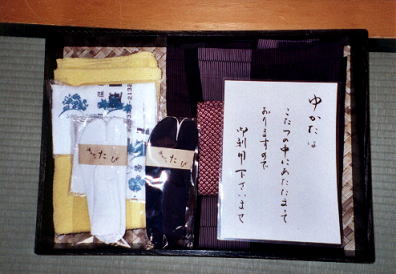 ゆかたは
こたつの中にあたたまって
おりますので
御利用下さいませ
たび
たび